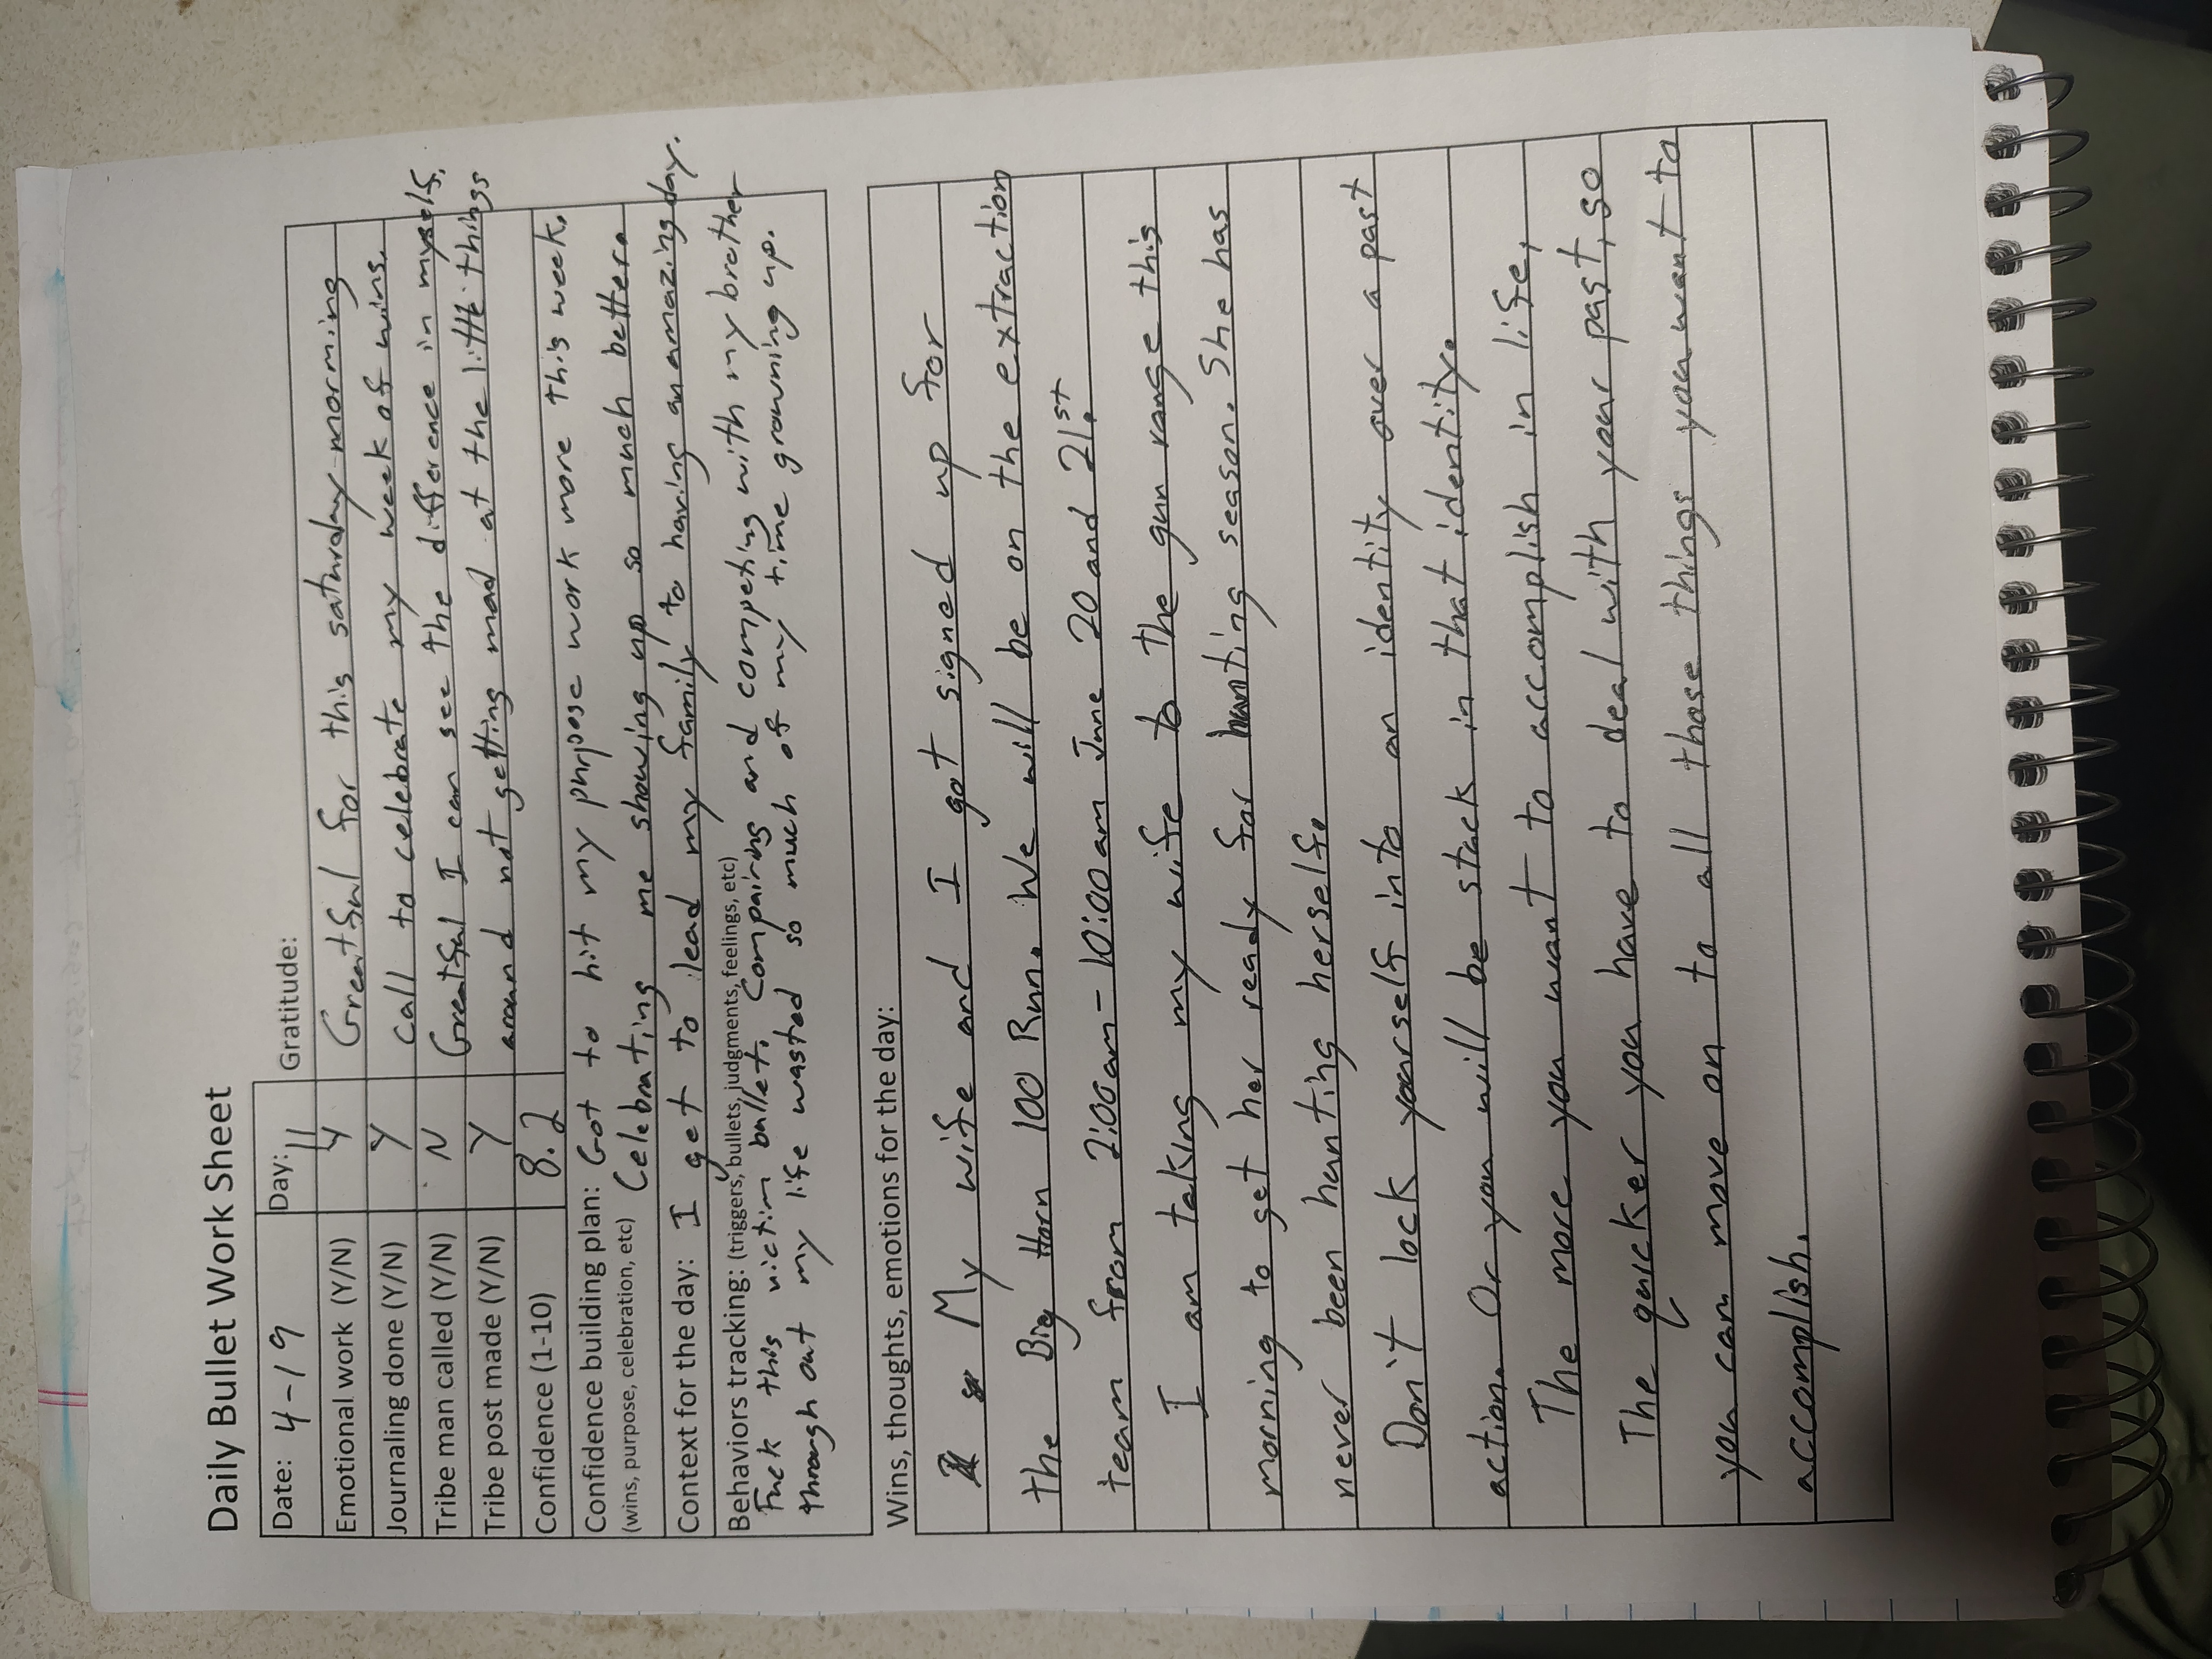 Daily Bullet Work Sheet
Date: 4-19 Day: 11 Gratitude:
Emotional work (Y/N) Y Greatful for this saturday morning
Journaling done (Y/N) Y call to celebrate my week of wins.
Tribe man called (Y/N) N Greatful I can see the difference in myself.
Tribe post made (Y/N) Y around not getting mad at the little things
Confidence (1-10) 8.2
Confidence building plan: Got to hit my purpose work more this week.
(wins, purpose, celebration, etc) Celebrating me showing up so much better.
Context for the day: I get to lead my family to having an amazing day.
Behaviors tracking: (triggers, bullets, judgments, feelings, etc)
Fuck this victim bullet. Compairing and competing with my brother
through out my life wasted so much of my time growning up.
Wins, thoughts, emotions for the day:
My wife and I got signed up for
the Big Horn 100 Run. We will be on the extraction
team from 2:00am-10:00am June 20 and 21st.
I am taking my wife to the gun range this
morning to get her ready for hunting season. She has
never been hunting herself.
Don't lock yourself into an identity over a past
action. Or you will be stuck in that identity.
The more you want to accomplish in life,
The quicker you have to deal with your past, so
you can move on to all those things you want to
accomplish.